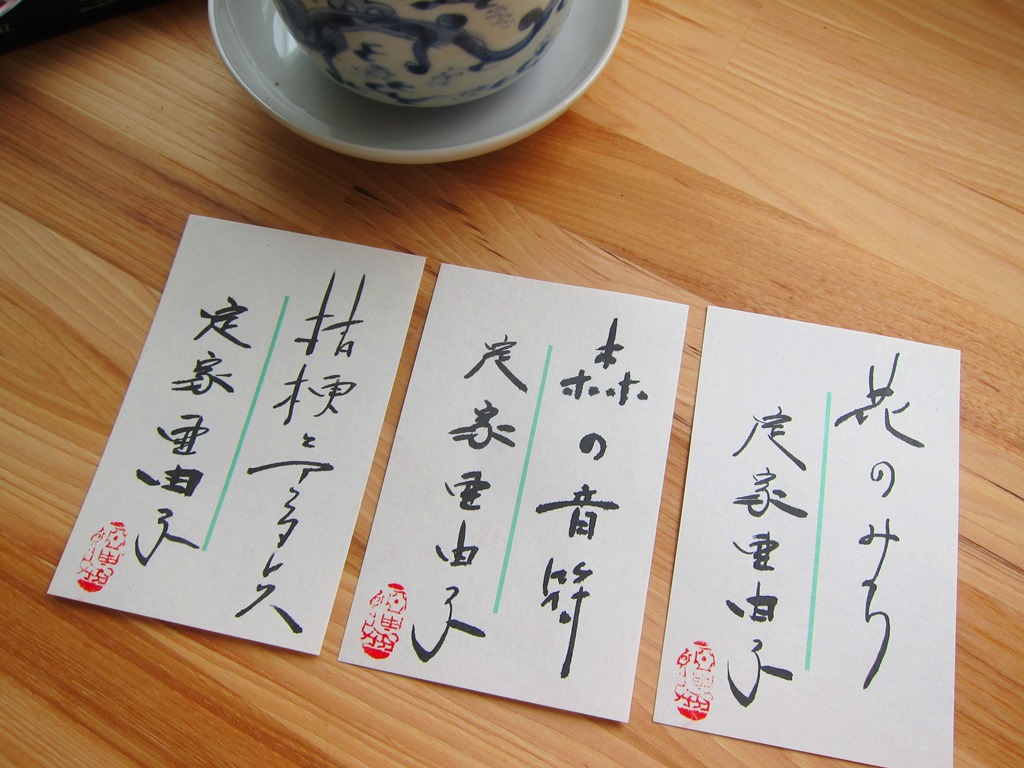 花のみち
定家亜由子
森の音符
定家亜由子
桔梗と
定家亜由子